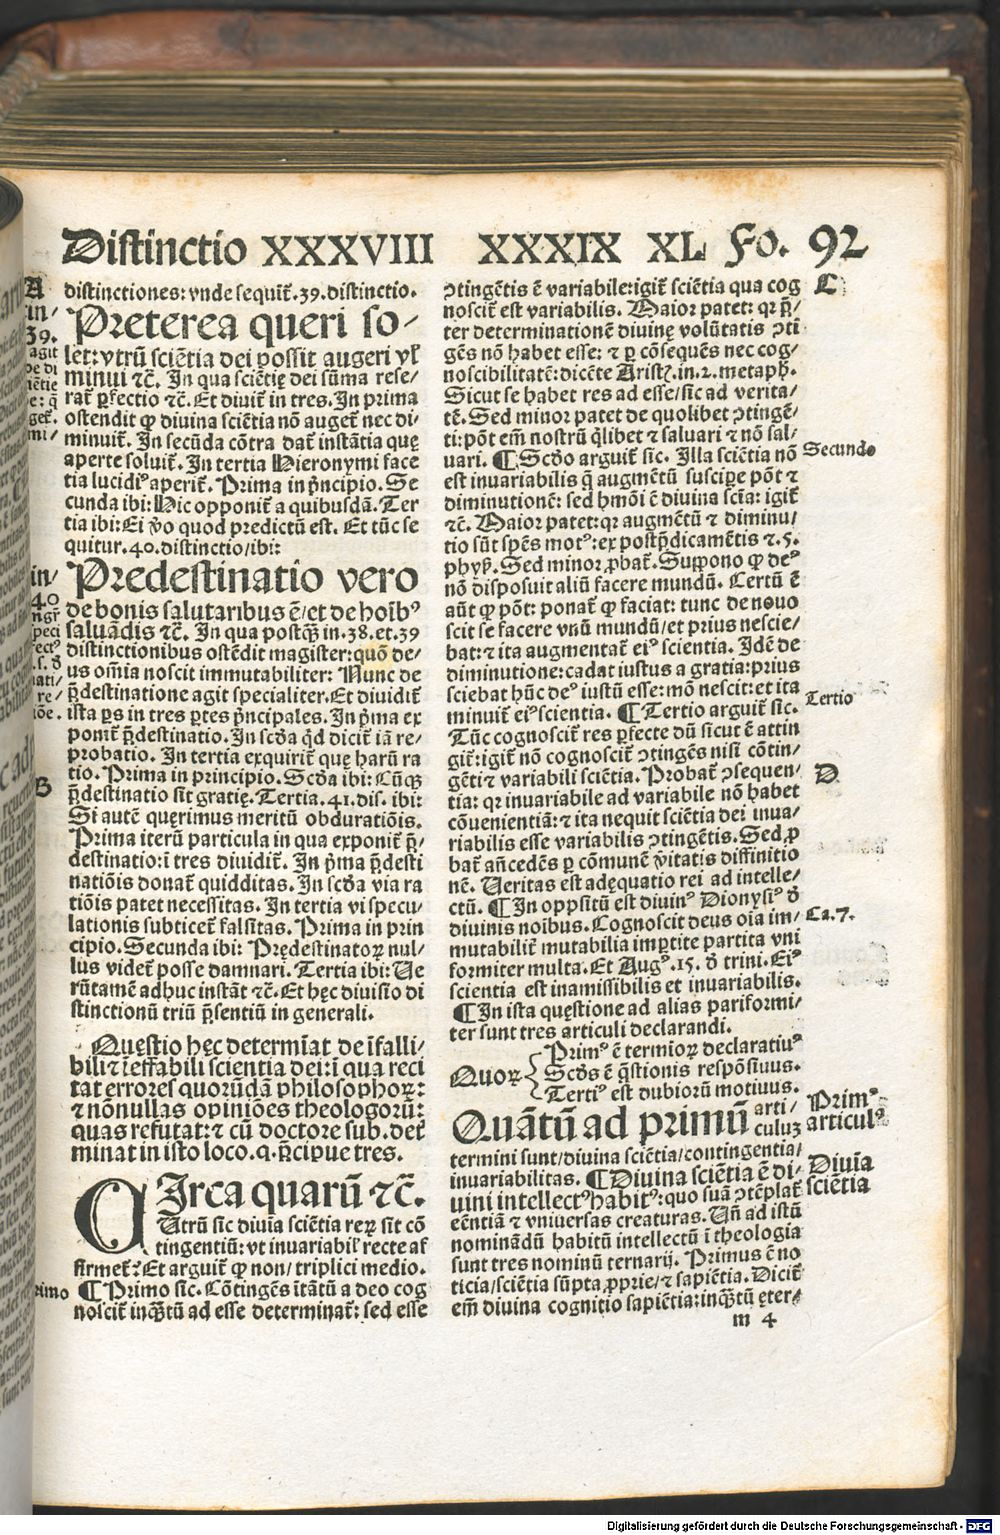 Distinctio XXXVIII XXXIX XL Fo. 92
distinctiones: vnde sequit᷑.39.distinctio.
Preterea queri so⸗
let: vtrũ sciẽtia dei possit augeri vl᷑
minui ⁊c̃. In qua sciẽtię dei sũma rese⸗
rat᷑ ꝑfectio ⁊c̃. Et diuit᷑ in tres. In prima
ostendit ꝙ diuina sciẽtia nõ auget᷑ nec di⸗
minuit᷑. In secũda cõtra dat᷑ instãtia quę
aperte soluit᷑. In tertia Hieronymi face
tia lucidiꝰ aperit᷑. Prima in pͥncipio. Se
cunda ibi: Hic opponit᷑ a quibusdã. Ter
tia ibi: Ei v̾o quod predictũ est. Et tũc se
quitur.40.distinctio/ibi:
Predestinatio vero
de bonis salutaribus ẽ/et de hoĩbꝰ
saluãdis ⁊c̃. In qua postq̃ꝫ in.38.et.39
distinctionibus ostẽdit magister: quõ de⸗
us om̃ia noscit immutabiliter: Nunc de
p̃destinatione agit specialiter. Et diuidit᷑
ista ps in tres ꝑtes pͥncipales. In pͥma ex
ponit᷑ p̃destinatio. In scďa qͥd dicit᷑ iã re⸗
probatio. In tertia exquirit᷑ quę harũ ra
tio. Prima in principio. Scďa ibi: Cũqꝫ
p̃destinatio sit gratię. Tertia.41.dis. ibi:
Si autẽ quęrimus meritũ obduratiõis.
Prima iterũ particula in qua exponit᷑ p̃⸗
destinatio: ĩ tres diuidit᷑. In pͥma p̃desti
natiõis donat᷑ quidditas. In scďa via ra
tiõis patet necessitas. In tertia vi specu⸗
lationis subticet᷑ falsitas. Prima in prin
cipio. Secunda ibi: Prędestinatoꝝ nul⸗
lus videt᷑ posse damnari. Tertia ibi: Ue
rũtamẽ adhuc instãt ⁊c̃. Et hęc diuisio di
stinctionũ triũ p̃sentiũ in generali.
Quęstio hęc determĩat de ĩfalli⸗
bili ⁊ ĩeffabili scientia dei: ĩ qua reci
tat errores quorũdã philosophoꝝ:
⁊ nõnullas opiniões theologorũ:
quas refutat: ⁊ cũ doctore sub. det᷑
minat in isto loco.q. p̃cipue tres.
CIrca quarũ ⁊c̃.
Utrũ sic diuĩa sciẽtia reꝝ sit cõ
tingentiũ: vt inuariabil᷑ recte af
firmet᷑? Et arguit᷑ ꝙ non/triplici medio.
¶ Primo sic. Cõtingẽs ĩtãtũ a deo cog
noscit᷑ inqͣtũ ad esse determinat᷑: sed esse
ↄtingẽtis ẽ variabile: igit᷑ sciẽtia qua cog
noscit᷑ est variabilis. Maior patet: qꝛ p̃⸗
ter determinationẽ diuinę volũtatis ↄti
gẽs nõ habet esse: ⁊ ꝑ cõsequẽs nec cog⸗
noscibilitatẽ: dicẽte Aristꝭ.in.2.metaph.
Sicut se habet res ad esse/sic ad verita⸗
tẽ. Sed minor patet de quolibet ↄtingẽ⸗
ti: põt em̃ nostrũ qͥlibet ⁊ saluari ⁊ nõ sal⸗
uari. ¶ Scďo arguit᷑ sic. Illa sciẽtia nõ
est inuariabilis q̃ augmẽtũ suscipe põt ⁊
diminutionẽ: sed hmõi ẽ diuina scĩa: igit᷑
⁊c̃. Maior patet: qꝛ augmẽtũ ⁊ diminu⸗
tio sũt spẽs motꝰ: ex postp̃dicamẽtis ⁊.5.
phyẜ. Sed minor ꝓbat᷑. Suppono ꝙ deꝰ
nõ disposuit aliũ facere mundũ. Certũ ẽ
aũt ꝙ põt: ponat᷑ ꝙ faciat: tunc de nouo
scit se facere vnũ mundũ/et prius nescie⸗
bat: ⁊ ita augmentat᷑ eiꝰ scientia. Idẽ de
diminutione: cadat iustus a gratia: prius
sciebat hũc deꝰ iustũ esse: mõ nescit: et ita
minuit᷑ eiꝰ scientia. ¶ Tertio arguit᷑ sic.
Tũc cognoscit᷑ res ꝑfecte dũ sicut ẽ attin
git᷑: igit᷑ nõ cognoscit᷑ ↄtingẽs nisi cõtin⸗
gẽti ⁊ variabili sciẽtia. Probat᷑ ↄsequen⸗
tia: qꝛ inuariabile ad variabile nõ habet
cõuenientiã: ⁊ ita nequit sciẽtia dei inua⸗
riabilis esse variabilis ↄtingẽtis. Sed ꝓ
bat᷑ añcedẽs ꝑ cõmunẽ v̾itatis diffinitio
nẽ. Ueritas est adęquatio rei ad intelle⸗
ctũ. ¶ In oppsitũ est diuinꝰ Dionysiꝰ ď
diuinis noĩbus. Cognoscit deus oĩa im⸗
mutabilit᷑ mutabilia imꝑtite partita vni
formiter multa. Et Augꝰ.15. ď trini. Eiꝰ
scientia est inamissibilis et inuariabilis.
¶ In ista quęstione ad alias pariformi⸗
ter sunt tres articuli declarandi.
Primꝰ ẽ termĩoꝝ declaratiuꝰ
Quoꝝ Scďs ẽ q̃stionis respõsiuus.
Tertiꝰ est dubiorũ motiuus.
Quãtũ ad primũ arti⸗
culuꝫ
termini sunt/diuina sciẽtia/contingentia/
inuariabilitas. ¶ Diuina sciẽtia ẽ di⸗
uini intellectꝰ habitꝰ: quo suã ↄtẽplat᷑
eẽntiã ⁊ vniuersas creaturas. Uñ ad istũ
nominãdũ habitũ intellectũ ĩ theologia
sunt tres nominũ ternarij. Primus ẽ no
ticia/sciẽtia sũpta ꝓprie/⁊ sapiẽtia. Dicit᷑
em̃ diuina cognitio sapiẽtia: inqͣtũ ęter⸗
m 4
A
39.
40
B
C
Secundo
Tertio
D
Ca.7.
Primꝰ
articulꝰ
Diuĩa
sciẽtia
Digitalisierung gefördert durch die Deutsche Forschungsgemeinschaft - DFG